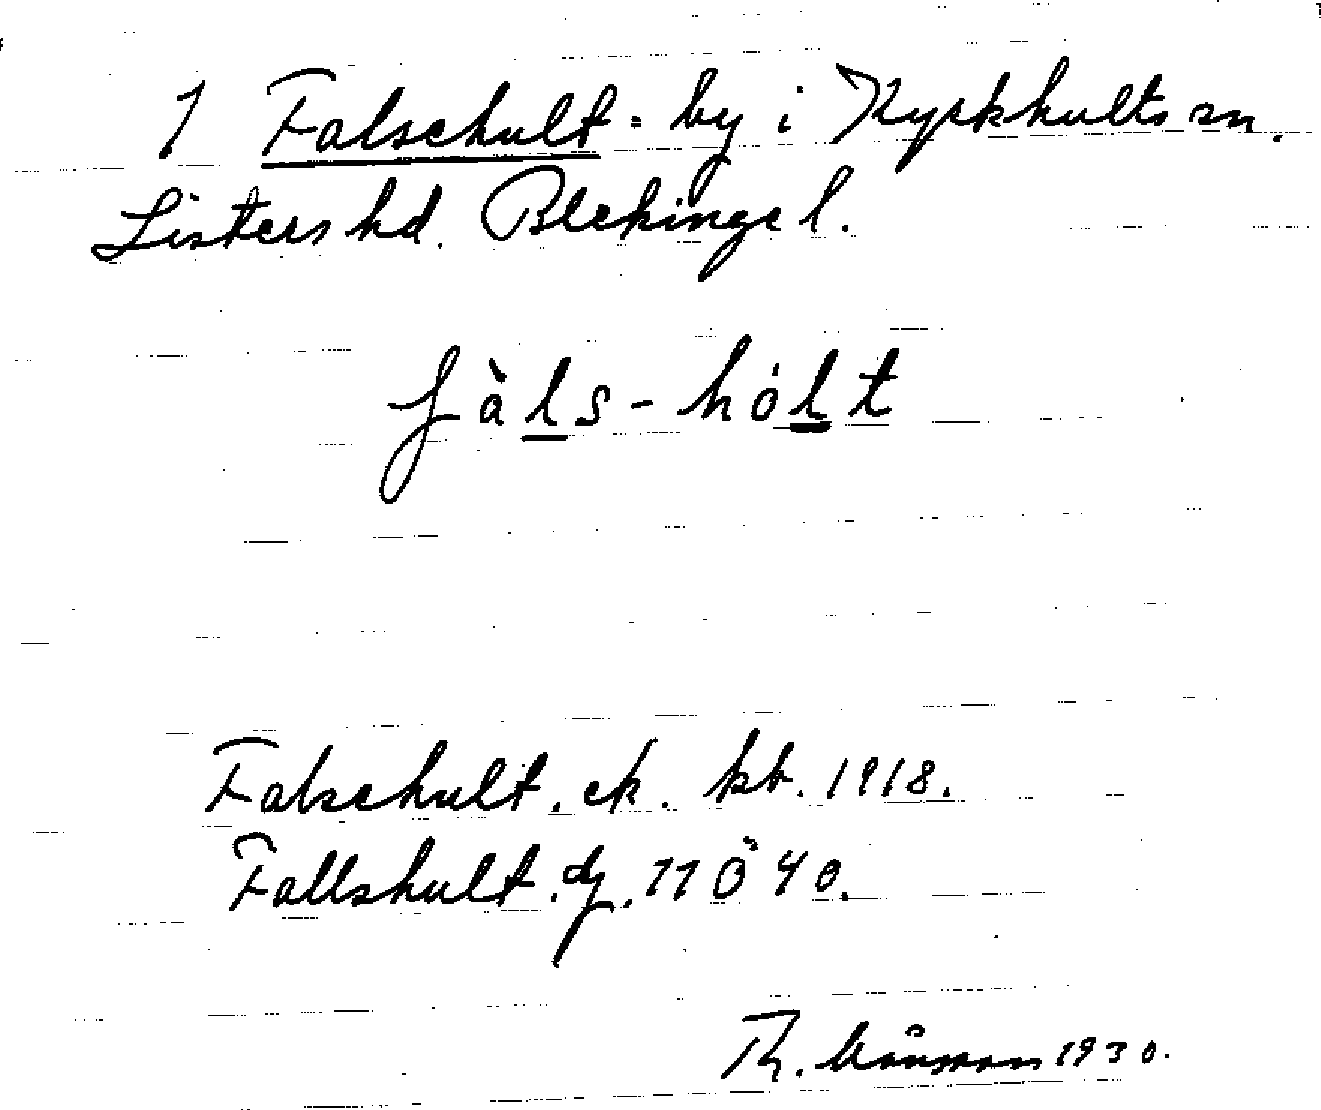 1 Falsehult. by i Kyrkhults sn.
Listers hd. Blekinge l.
fàls-hólt
Falsehult. ek. kb. 1918.
Fallshult. 11 Ö 40.
Th. Månsson 1930.